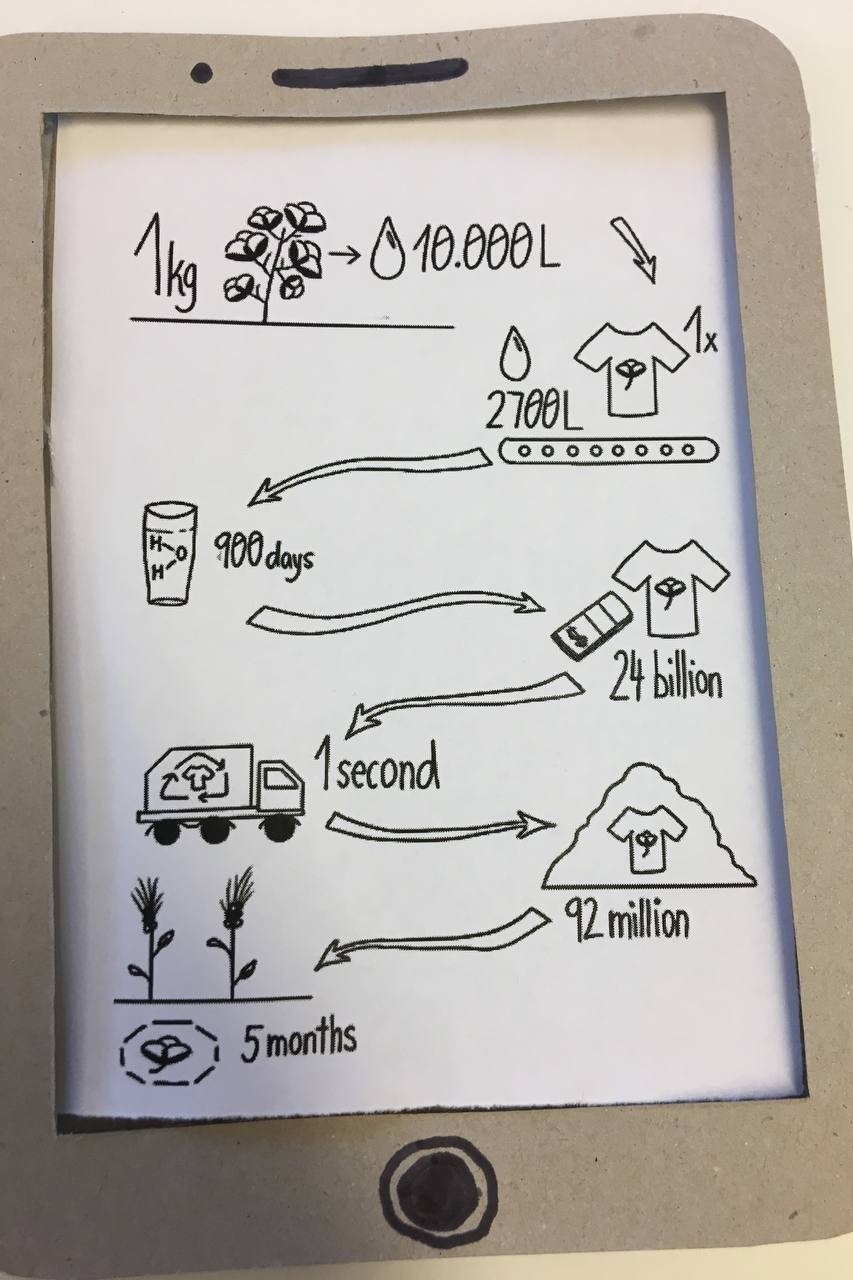 1kg → 10.000L
1x
2700L
H
O
H
900 days
$
24 billion
1 second
92 million
5 months